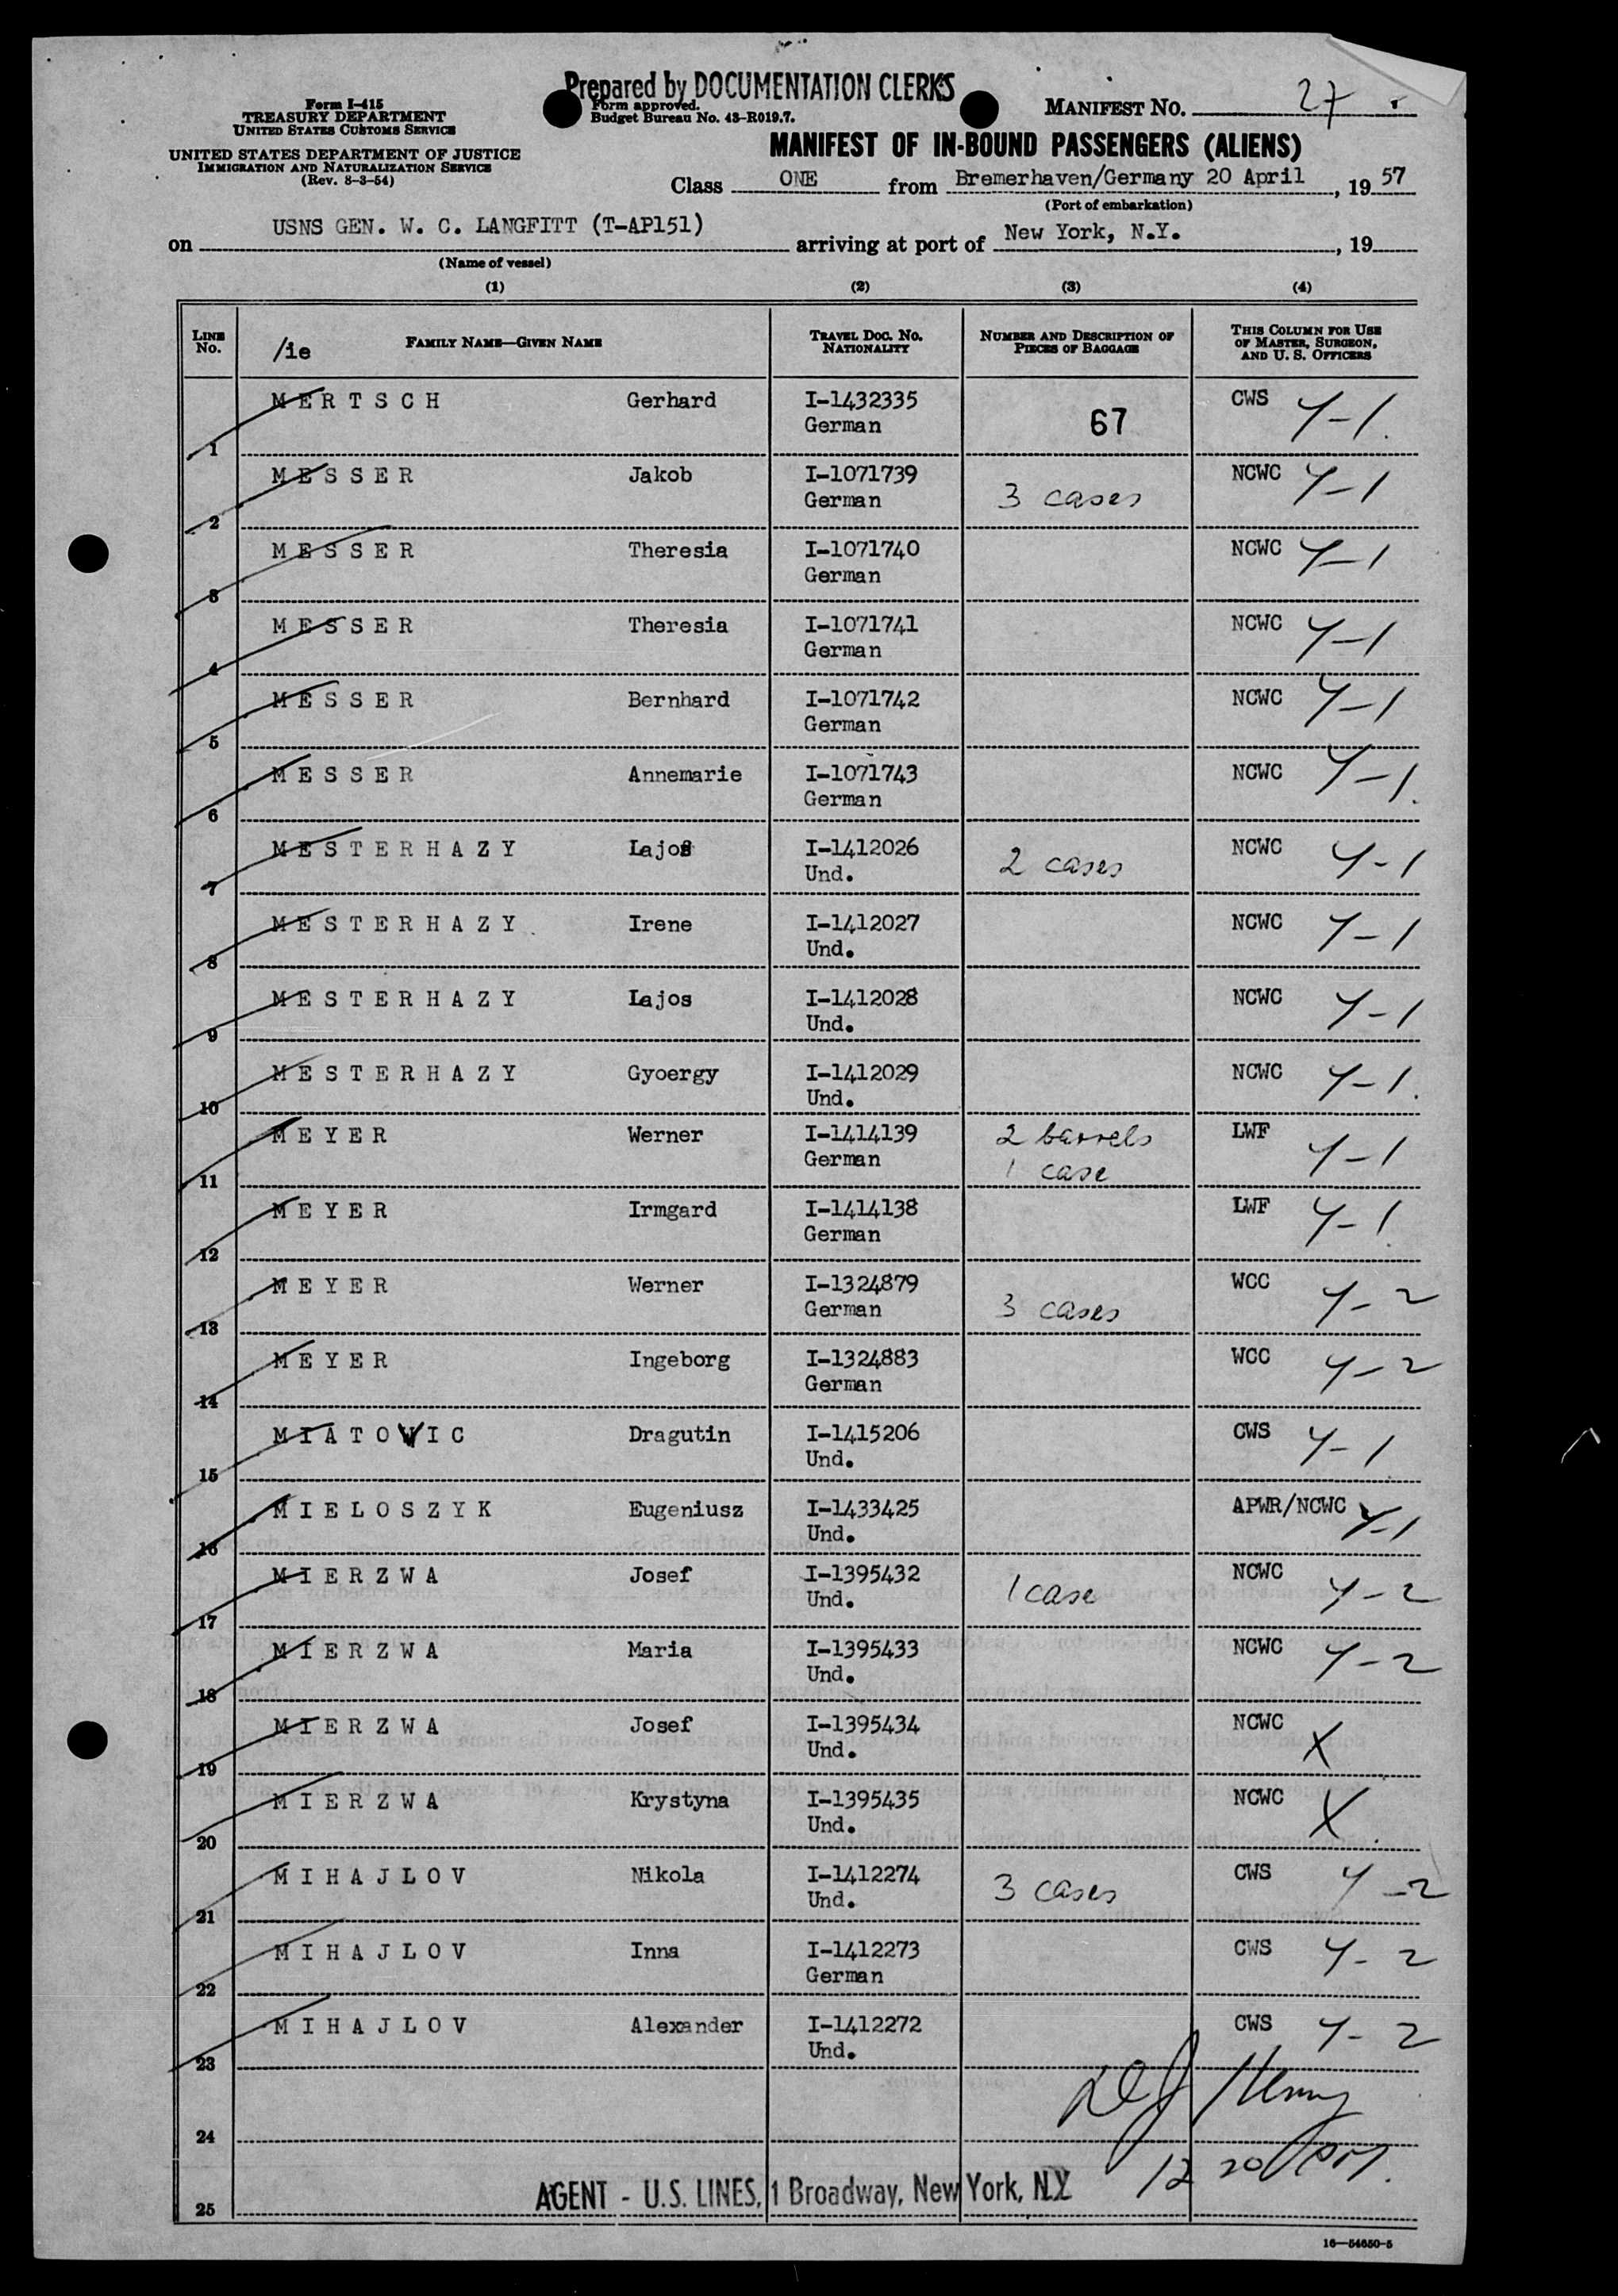 Prepared by DOCUMENTATION CLERKS
Form I-415
TREASURY DEPARTMENT
UNITED STATES CUSTOMS SERVICE
Form approved.
Budget Bureau No. 43-R019.7.
MANIFEST NO. 27
UNITED STATES DEPARTMENT OF JUSTICE
IMMIGRATION AND NATURALIZATION SERVICE
(Rev. 8-3-54)
MANIFEST OF IN-BOUND PASSENGERS (ALIENS)
Class ONE from Bremerhaven/Germany 20 April, 19 57
(Port of embarkation)
on USNS GEN. W. C. LANGFITT (T-AP151) arriving at port of New York, N.Y., 19
(Name of vessel)
(1) (2) (3) (4)
LINE No. /ie FAMILY NAME—GIVEN NAME TRAVEL DOC. NO. NATIONALITY NUMBER AND DESCRIPTION OF PIECES OF BAGGAGE THIS COLUMN FOR USE OF MASTER, SURGEON, AND U. S. OFFICERS
MERTSCH Gerhard I-1432335 CWS Y-1.
1 German 67
MESSER Jakob I-1071739 NCWC Y-1
2 German 3 cases
MESSER Theresia I-1071740 NCWC Y-1
3 German
MESSER Theresia I-1071741 NCWC Y-1
4 German
MESSER Bernhard I-1071742 NCWC Y-1
5 German
MESSER Annemarie I-1071743 NCWC Y-1.
6 German
MESTERHAZY Lajos I-1412026 NCWC Y-1
7 Und. 2 cases
MESTERHAZY Irene I-1412027 NCWC Y-1
8 Und.
MESTERHAZY Lajos I-1412028 NCWC Y-1
9 Und.
MESTERHAZY Gyoergy I-1412029 NCWC Y-1.
10 Und.
MEYER Werner I-1414139 2 barrels LWF Y-1
11 German 1 case
MEYER Irmgard I-1414138 LWF Y-1
12 German
MEYER Werner I-1324879 WCC Y-2
13 German 3 cases
MEYER Ingeborg I-1324883 WCC Y-2
14 German
MIATOVIC Dragutin I-1415206 CWS Y-1
15 Und.
MIELOSZYK Eugeniusz I-1433425 APWR/NCWC Y-1
16 Und.
MIERZWA Josef I-1395432 NCWC Y-2
17 Und. 1 case
MIERZWA Maria I-1395433 NCWC Y-2
18 Und.
MIERZWA Josef I-1395434 NCWC X
19 Und.
MIERZWA Krystyna I-1395435 NCWC X
20 Und.
MIHAJLOV Nikola I-1412274 CWS Y-2
21 Und. 3 cases
MIHAJLOV Inna I-1412273 CWS Y-2
22 German
MIHAJLOV Alexander I-1412272 CWS Y-2
23 Und.
24
12 20 PM.
AGENT - U.S. LINES, 1 Broadway, New York, N.Y.
25
16—54650-5